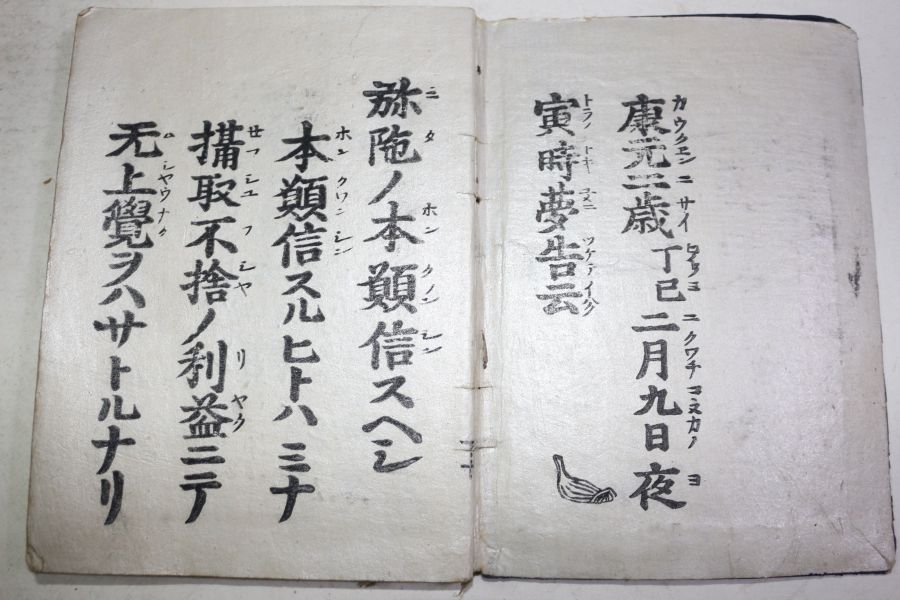 康元二歳丁巳二月九日夜
寅時夢告云
弥陁ノ本願信スヘシ
本願信スルヒトハミナ
攝取不捨ノ利益ニテ
无上覺ヲハサトルナリ